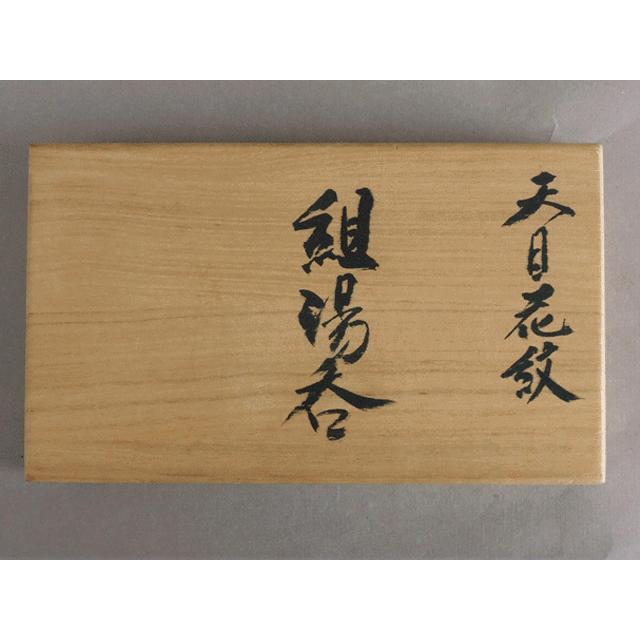 天目花紋
組湯呑